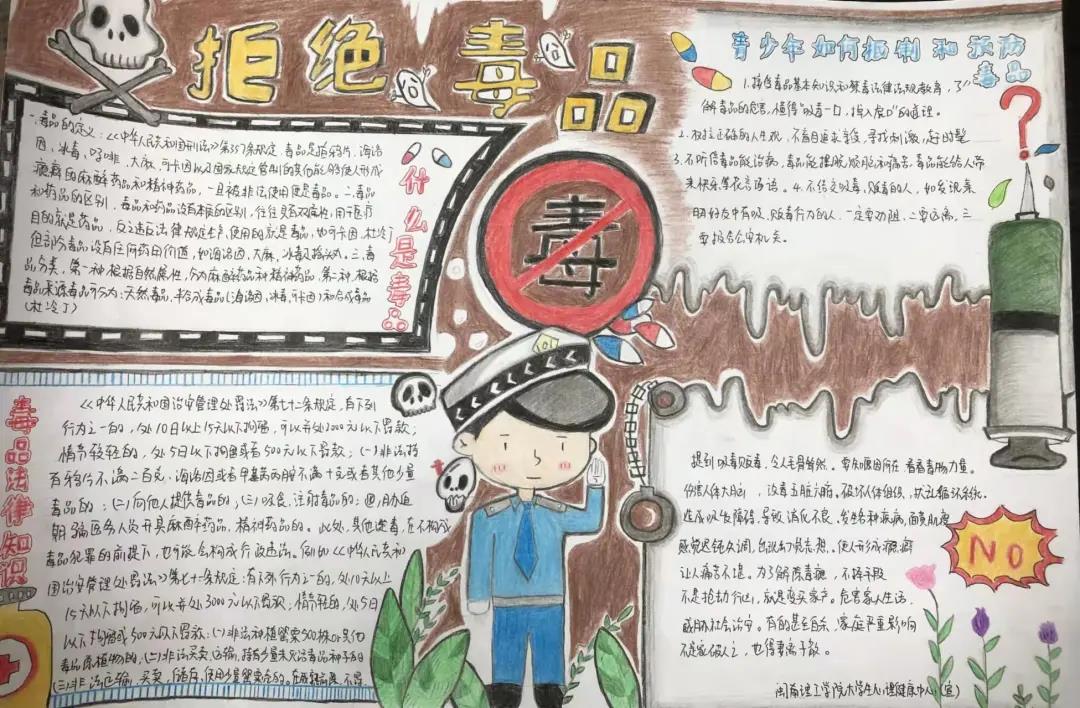 拒绝毒品
什么是毒品
一.毒品的定义:《中华人民共和国刑法》第357条规定,毒品是指鸦片、海洛
因、冰毒、吗啡、大麻、可卡因以及国家规定管制的其他能够使人形成
瘾癖的麻醉药品和精神药品,一旦被非法使用便是毒品。二.毒品
和药品的区别,毒品和药品没有本质的区别,往往具有双重性,用于医疗
目的就是药品,反之违反法律规定使用的就是毒品,如可卡因、杜冷丁
但部分毒品没有任何药用价值,如海洛因、大麻、冰毒及摇头丸。三.毒
品分类,第一种根据自然属性,分为麻醉药品和精神药品,第二种根据
毒品来源毒品可分为:天然毒品,半合成毒品(海洛因,冰毒,可卡因)和合成毒品
(杜冷丁)
青少年如何抵制和预防
毒品
1.接受毒品基本知识和禁毒法律法规教育,了
解毒品的危害,懂得“吸毒一口,掉入虎口”的道理。
2.树立正确的人生观,不盲目追求享受,寻求刺激,赶时髦
3.不听信毒品能治病,毒品能解脱烦恼和痛苦,毒品能给人带
来快乐等花言巧语。4.不结交吸毒、贩毒的人,如发现亲
朋好友中有吸、贩毒行为的人,一定要劝阻,二要远离,三
要报告公安机关。
毒
毒品法律知识
《中华人民共和国治安管理处罚法》第七十二条规定,有下列
行为之一的,处10日以上15天以下拘留,可以并处2000元以下罚款;
情节较轻的,处5日以下拘留或者500元以下罚款;(一)非法持
有鸦片不满二百克,海洛因或者甲基苯丙胺不满十克或者其他少量
毒品的;(二)向他人提供毒品的;(三)吸食、注射毒品的;(四)胁迫
欺骗医务人员开具麻醉药品,精神药品的。此外,其他涉毒,在不构成
毒品犯罪的前提下,也可能会构成行政违法。例如《中华人民共和
国治安管理处罚法》第七十一条规定:有下列行为之一的,处10天以上
15天以下拘留,可以并处3000元以下罚款;情节轻的,处5日
以下拘留或500元以下罚款:(一)非法种植罂粟500株或其他
毒品原植物的,(二)非法买卖、运输、持有少量未灭活毒品种子的
(三)非法运输,买卖,储存,使用少量罂粟壳的。
提到吸毒贩毒,令人毛骨悚然。要知原因所在,看看毒物力量。
伤害人体大脑,设毒五脏六腑。破坏人体组织,扰乱循环系统。
造成吸收障碍,导致消化不良。发生各种疾病,面黄肌瘦
感觉迟钝失调,出现幻觉妄想。使人形成瘾癖
让人痛苦不堪。为了解除毒瘾,不择手段
不是抢劫行凶,就是变卖家产。危害家人生活,
威胁社会治安。有的甚至自杀,家庭严重影响
不是家破人亡,也得妻离子散。
NO
闽南理工学院大学生心理健康中心(宣)